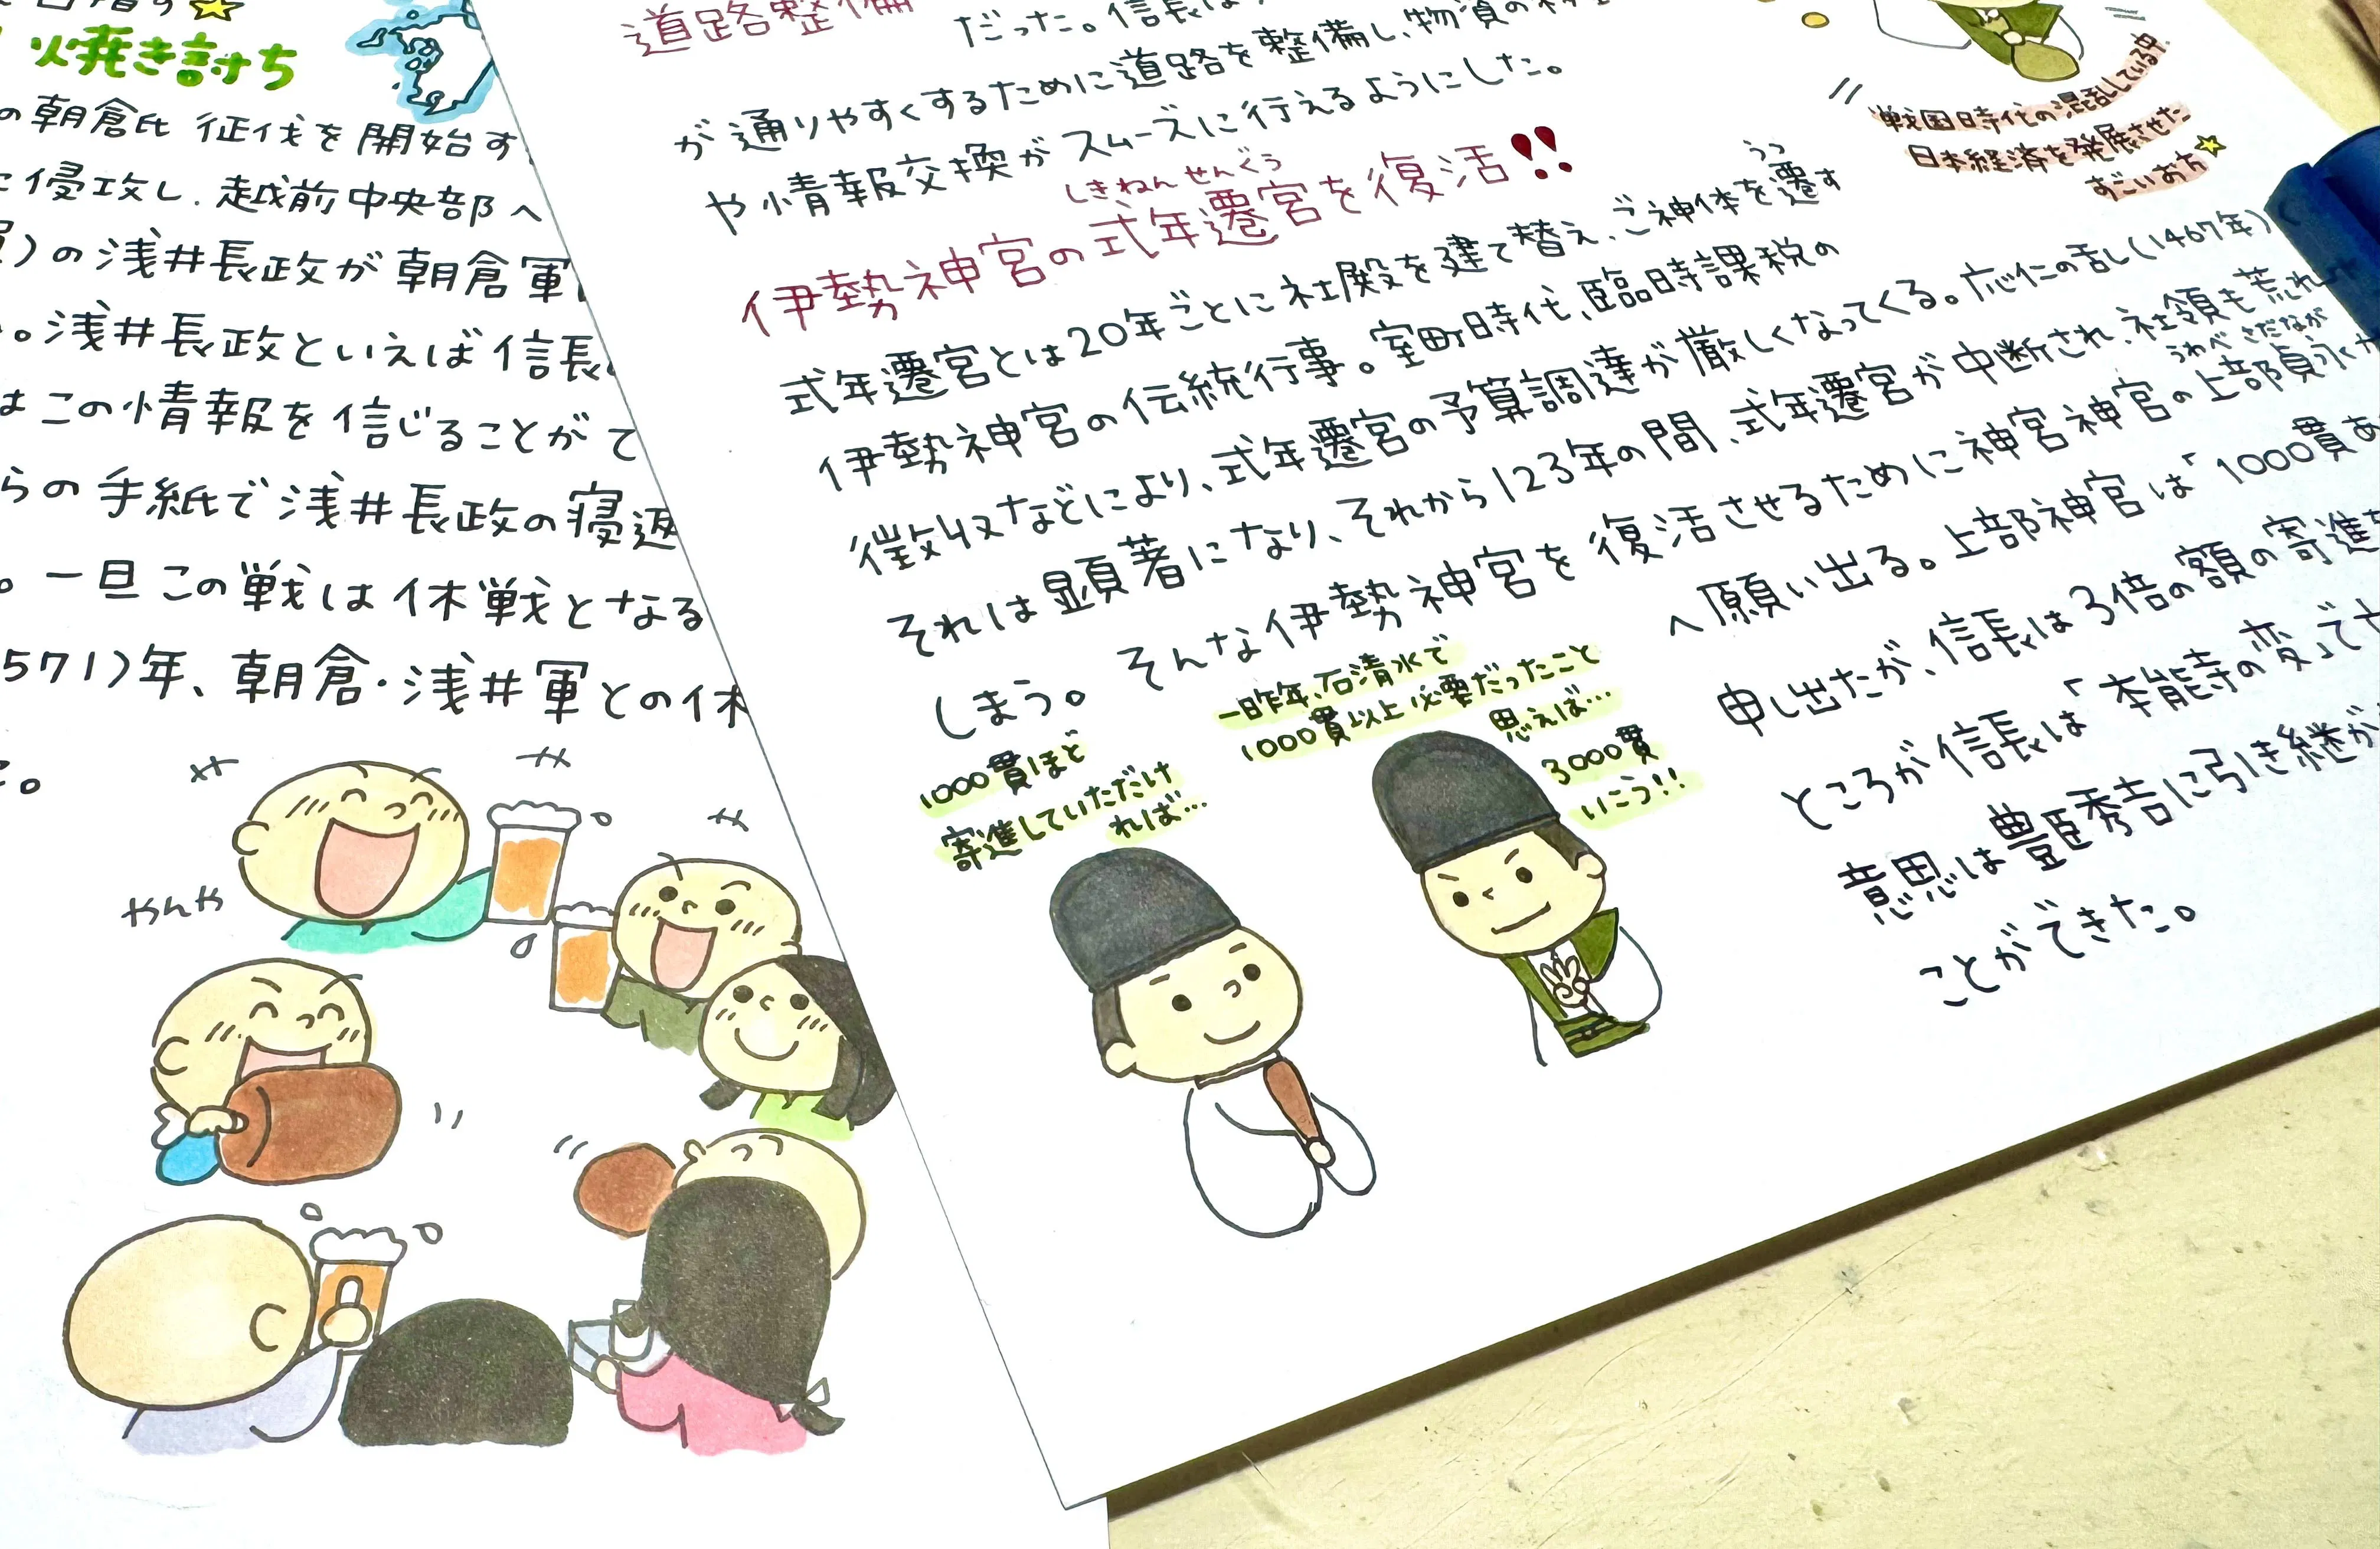 焼き討ち
の朝倉氏 征伐を開始す
侵攻し、越前中央部へ
の浅井長政が朝倉軍
。浅井長政といえば信長
はこの情報を信じることがで
らの手紙で浅井長政の寝返
。一旦この戦は休戦となる
571)年、朝倉・浅井軍との休
。
やんや
道路整備
だった。信長は
が通りやすくするために道路を整備し、物資の
や情報交換がスムーズに行えるようにした。
戦国時代の混乱している中、
日本経済を発展させた
すごいお方
しきねんせんぐう
伊勢神宮の式年遷宮を復活!!
うつ
式年遷宮とは20年ごとに社殿を建て替え、ご神体を遷す
伊勢神宮の伝統行事。室町時代、臨時課税の
徴収などにより、式年遷宮の予算調達が厳しくなってくる。応仁の乱し(1467年)
それは顕著になり、それから123年の間、式年遷宮が中断され、社領も荒れ
うわべ さだなが
しまう。そんな伊勢神宮を復活させるために神宮神官の上部貞永が
へ願い出る。上部神官は「1000貫あ
申し出たが、信長は3倍の額の寄進を
ところが信長は「本能寺の変」で
意思は豊臣秀吉に引き継が
ことができた。
1000貫ほど
寄進していただけ
れば…
一昨年、石清水で
1000貫以上必要だったこと
思えば…
3000貫
いこう!!